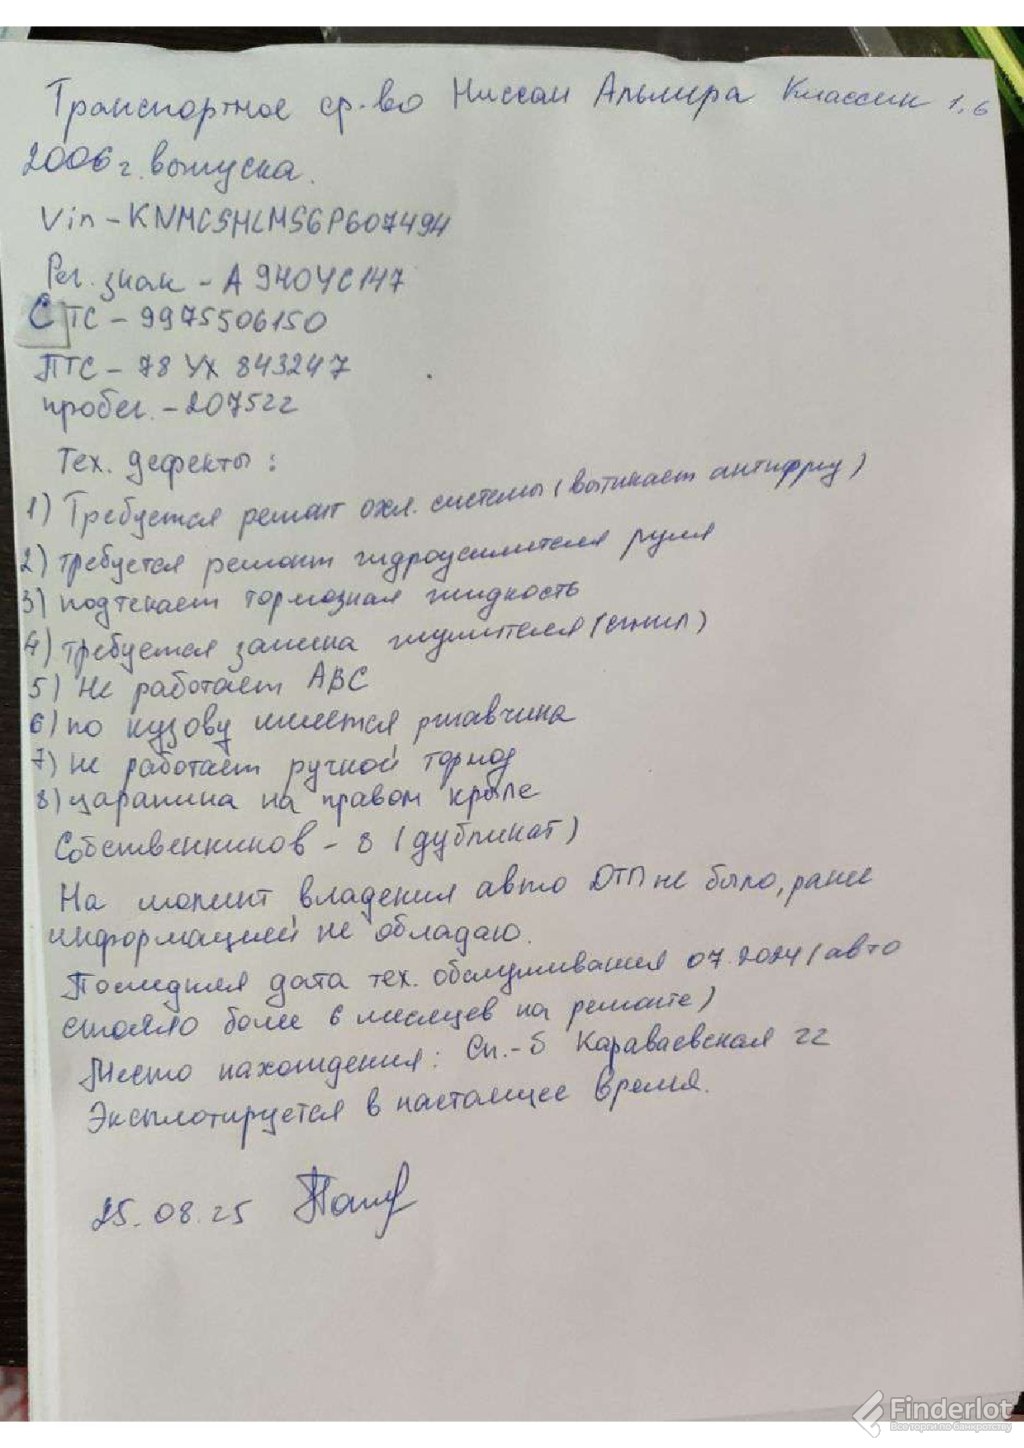 Транспортное ср-во Ниссан Альмира Классик 1,6
2006 г. выпуска.
Vin - KNMCSHLMS6P607494
Рег. знак - А 940 УС 147
СТС - 9975506150
ПТС - 78 УХ 843247
пробег. - 207522
Тех. дефекты:
1) Требуется ремонт охл. системы (вытикает антифриз)
2) требуется ремонт гидроусилителя руля
3) подтекает тормозная жидкость
4) требуется замена глушителя (сгнил)
5) Не работает АВС
6) по кузову имеется ржавчина
7) не работает ручной тормоз
8) царапина на правом крыле
Собственников - 8 (дубликат)
На момент владения авто ДТП не было, ранее
информацией не обладаю.
Последняя дата тех. обслуживания 07.2024 (авто
стояло более 6 месяцев на ремонте)
Место нахождения: Сп.-б Караваевская 22
Эксплотируется в настоящее время.
25.08.25
Finderlot
Все торги по банкротству